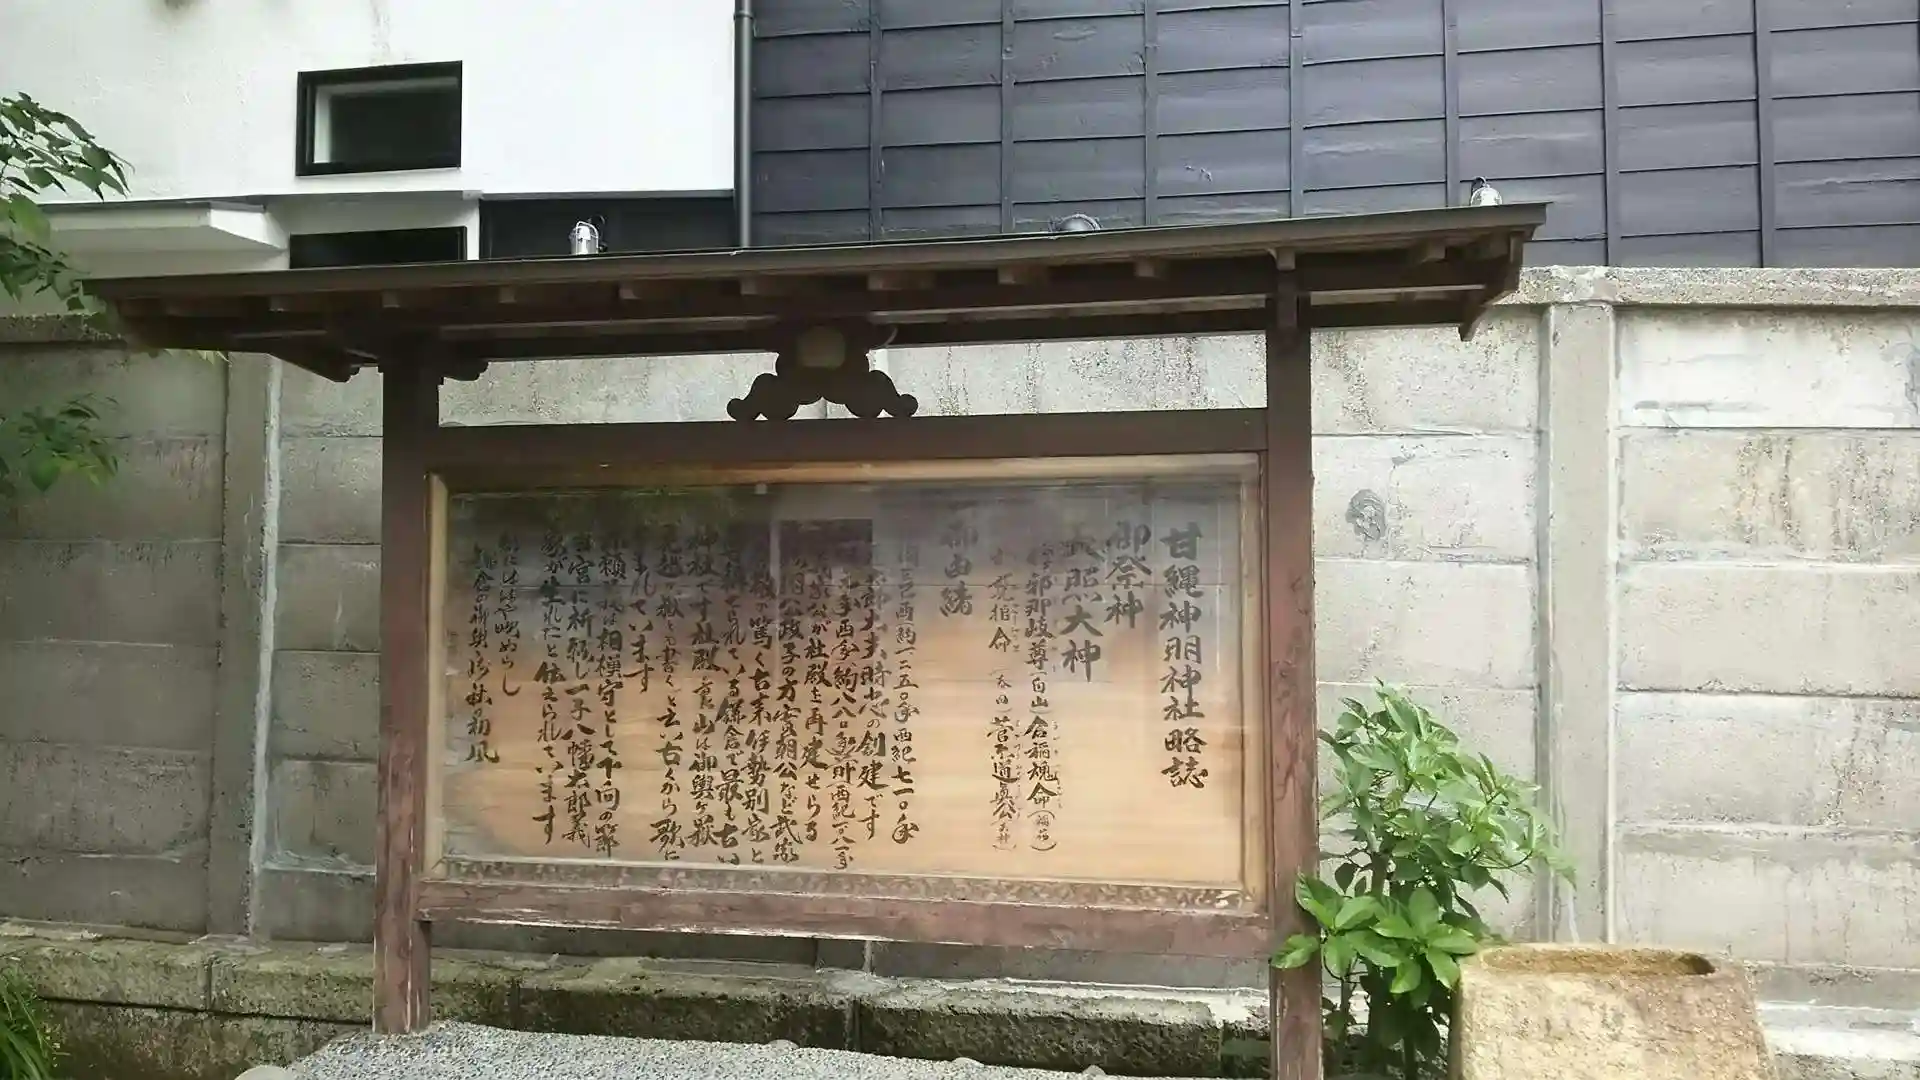 甘縄神明神社略誌
御祭神
天照大神
伊邪那岐尊(白山)倉稲魂命(稲荷)
命(春日)菅原道真公(天神)
御由緒
西約一二五〇年西紀七一〇年
時忠の創建です
西紀一〇八一年
公が社殿を再建せらる
頼朝公政子の方実朝公など武家
の篤く古来伊勢別宮と
られている鎌倉で最も古い
神社です社殿の裏山は御輿ヶ嶽
(見越ヶ嶽とも書く)と云い古くから歌に
まれています
源頼義は相模守として下向の節
当宮に祈願し一子八幡太郎義
家が生れたと伝えられています
都にははや吹ぬらし
鎌倉の御輿